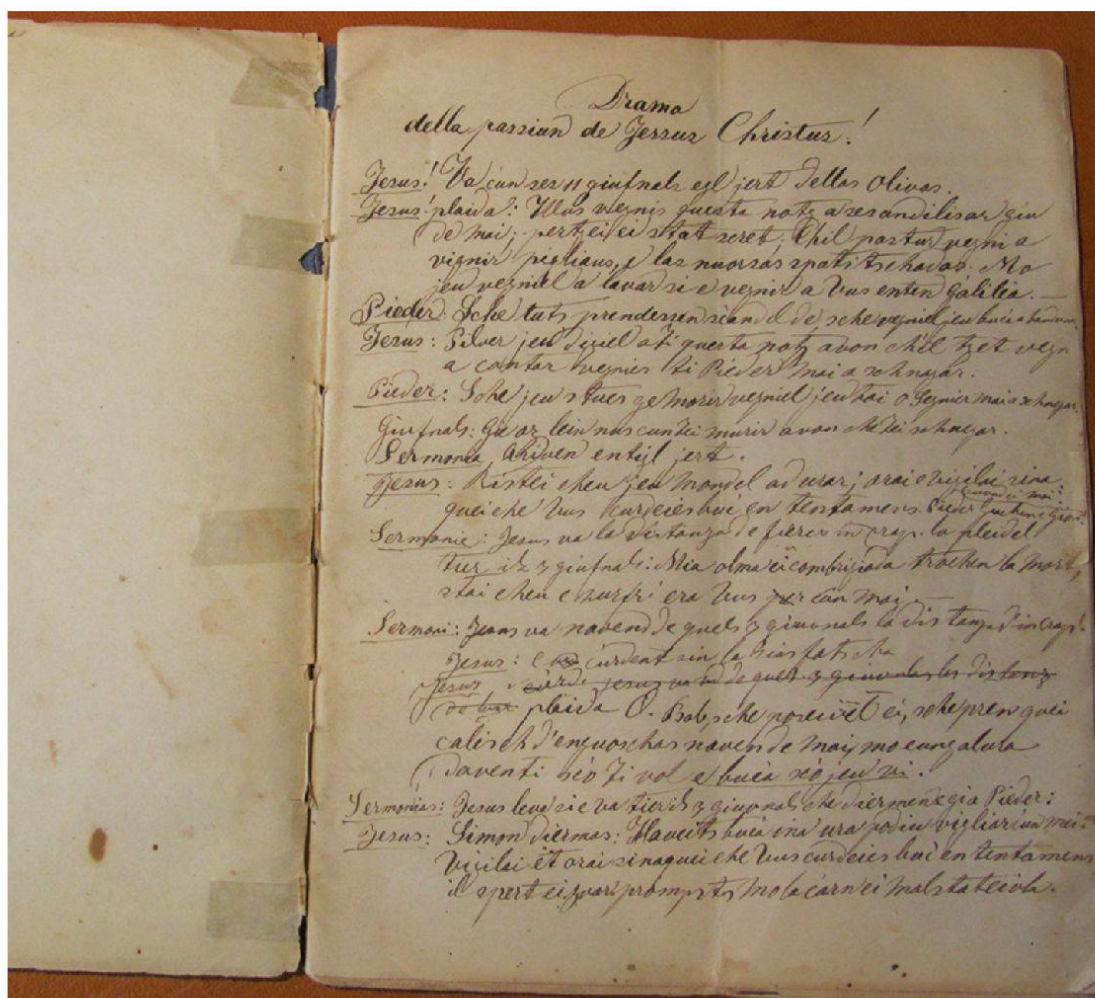 Drama
della passiun de Jessus Christus!
Jesus! Va cun ses 11 giufnals egl jert dellas Olivas.
Jesus! plaida: Wus vegnis questa notg a se scandilisar giu
de mai; pertgei ei stat scret: Chil pastur vegni a
vignir pigliaus, e las nuorsas spatitschadas. Mo
jeu vegniel a lavar si e vegnir a Vus enten Galilea. —
Pieder: Sche tuts prendessen scandel de, sche vegniel jeu buca
Jesus: Pilver jeu digiel a Ti questa notg avon chil tget vegn
a cantar vegnies ti Pieder mai a schnegar.
Pieder: Sche jeu stues ge morir vegniel jeu tai o Segnier mai a schnegar.
Giufnals: Gie oz lein nus cun tei murir avon che tei schnegar.
Sermonia, Ariven entigl jert.
Jesus: Ristei cheu jeu mondel ad urar, orai e vigilai sina
quei che Vus curdeies buc en tentamens. Pieder
Sermonie: Jesus va la distanza de fierer in crap. la pleidel
tier ils 3 giufnals: Mia olma ei combrigiada trochen la mort,
stai cheu e surfri era Vus cun mai. —
Sermoni: Jesus va navend de quels 3 giuvnals la distanza d'in crap.
Jesus: curdent sin la sias fatscha
Jesus, jesus va de quels 3 giuvnals la distanz
plaida O. Bab, sche poseivel ei, sche pren quei
calisch d'enguoschas navend de mai, mo eungalura
daventi sco Ti vol e buca sco jeu vi.
Sermonias: Jesus leva si e va tier ils 3 giuvnals che diermen e gi a Pieder:
Jesus: Simon diermas: Haveits buca ina ura podiu vigliar cun mei.
Vigilai et orai sinaquei che Vus curdeies buc en tentamens
il spert ei zvar prompts mo la carn ei mal stateivla.